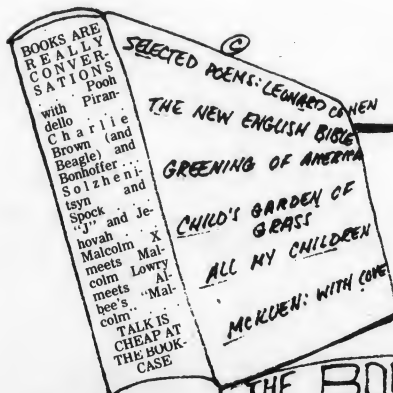 BOOKS ARE
REALLY
CONVER-
SATIONS
with Pooh
Piran-
dello
Charlie
Brown (and
Beagle) and
Bonhoffer . . .
Solzheni-
tsyn and
Spock . . .
"J" and Je-
hovah . . .
Malcolm X
meets Mal-
colm Lowry
meets Al-
bee's "Mal-
colm" . . .
TALK IS
CHEAP AT
THE BOOK-
CASE
©
SELECTED POEMS: LEONARD COHEN
THE NEW ENGLISH BIBLE
GREENING OF AMERICA
CHILD'S GARDEN OF
GRASS
ALL MY CHILDREN
MCKUEN: WITH LOVE
THE